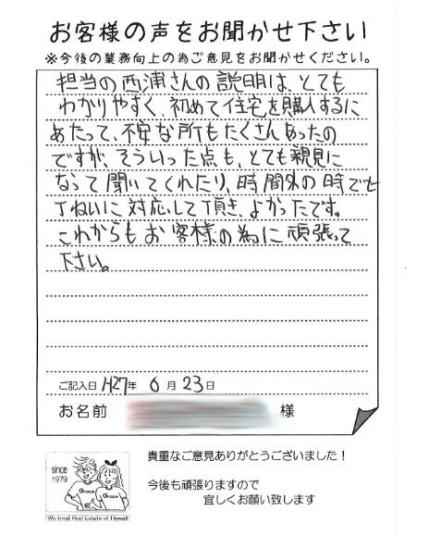 お客様の声をお聞かせ下さい
※今後の業務向上の為ご意見をお聞かせください。
担当の西浦さんの説明は、とても
わかりやすく、初めて住宅を購入するに
あたって、不安な所もたくさんあったの
ですが、そういった点も、とても親見に
なって聞いてくれたり、時間外の時でも
丁ねいに対応して頂き、よかったです。
これからもお客様の為に頑張って
下さい。
ご記入日 H27年 6月 23日
お名前 様
貴重なご意見ありがとうございました！
今後も頑張りますので
宜しくお願い致します
since
1979
Grace
Grace